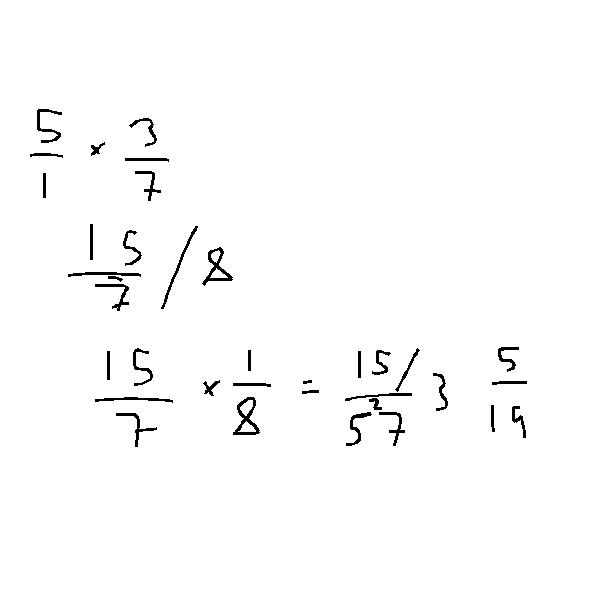 5/1 × 3/7
15/7 / 8
15/7 × 1/8 = 15/57 / 3 5/19